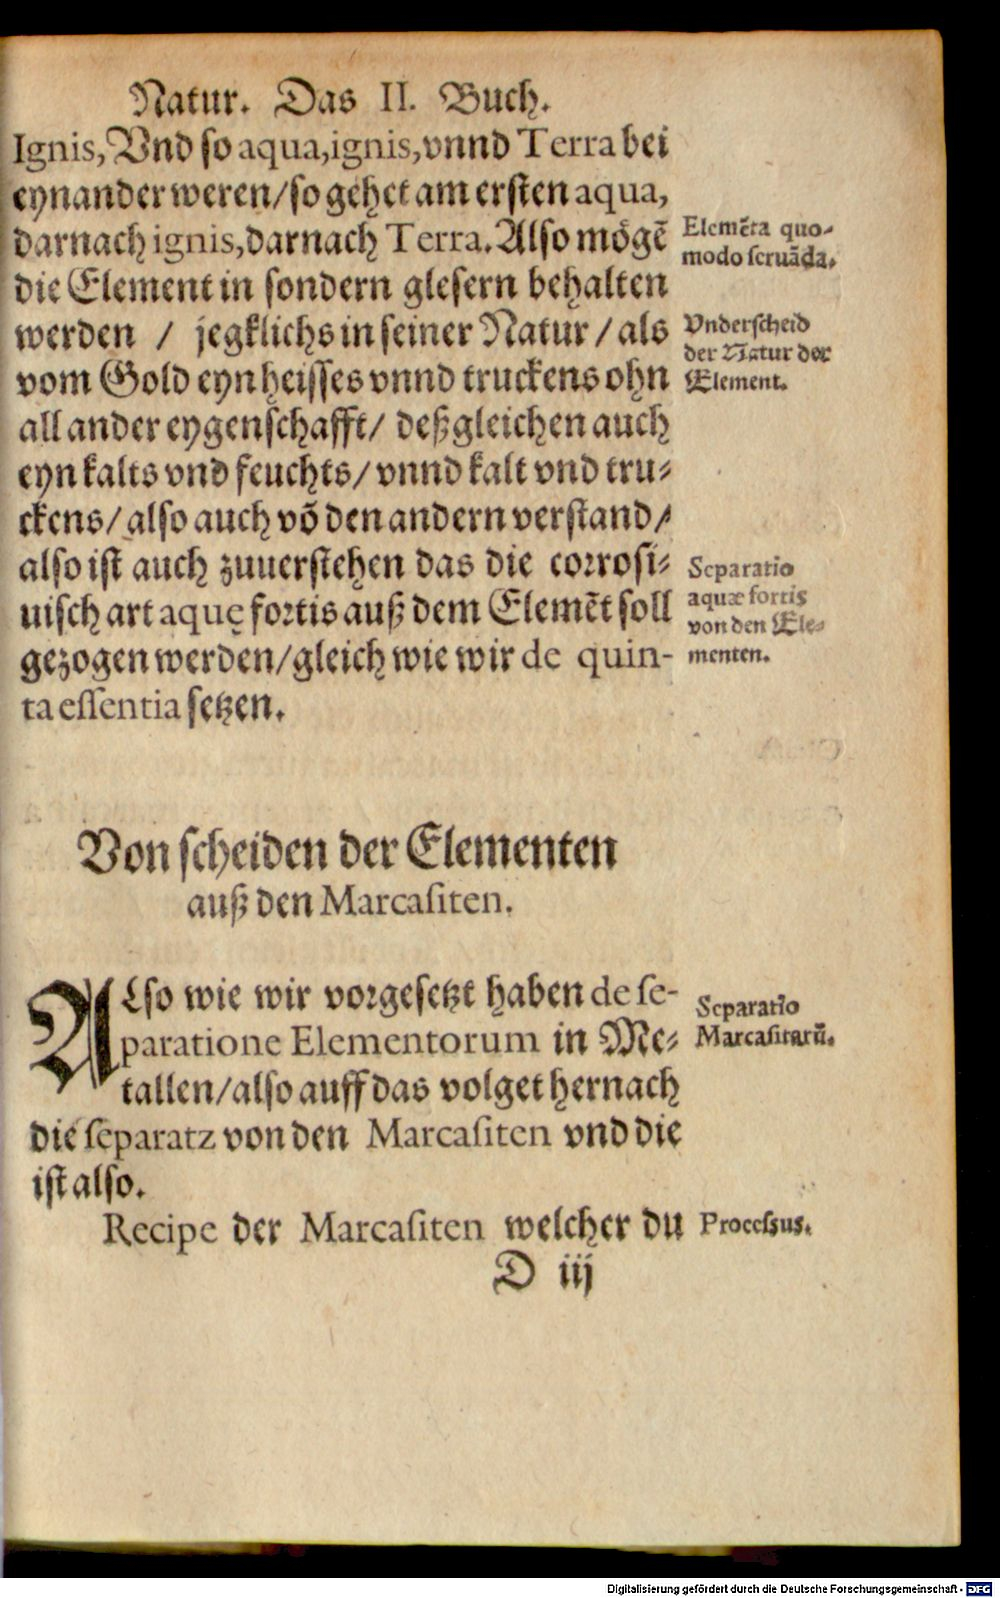 Natur. Das II. Buch.
Ignis, Vnd so aqua, ignis, vnnd Terra bei
eynander weren/ so gehet am ersten aqua,
darnach ignis, darnach Terra. Also mögẽ
die Element in sondern glesern behalten
werden / jegklichs in seiner Natur / als
vom Gold eyn heisses vnnd truckens ohn
all ander eygenschafft/ deßgleichen auch
eyn kalts vnd feuchts/ vnnd kalt vnd tru-
ckens/ also auch võ den andern verstand/
also ist auch zuuerstehen das die corrosi-
uisch art aquę fortis auß dem Elemẽt soll
gezogen werden/ gleich wie wir de quin-
ta essentia setzen.
Elemẽta quo-
modo seruãda.
Vnderscheid
der Natur der
Element.
Separatio
aquæ fortis
von den Ele-
menten.
Von scheiden der Elementen
auß den Marcasiten.
ALso wie wir vorgesetzt haben de se-
paratione Elementorum in Me-
tallen/ also auff das volget hernach
die separatz von den Marcasiten vnd die
ist also.
Recipe der Marcasiten welcher du
Separatio
Marcasitarũ.
Processus.
D iij
Digitalisierung gefördert durch die Deutsche Forschungsgemeinschaft - DFG